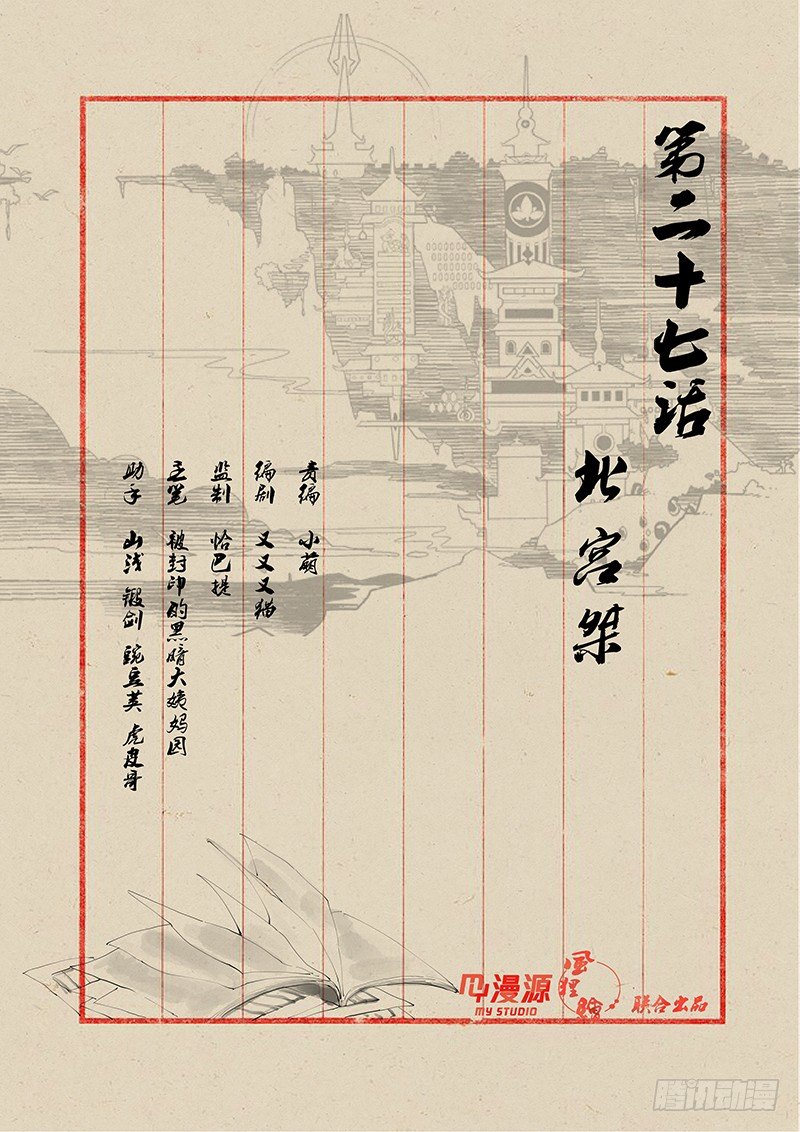 第二十七话
北宫桀
责编 小萌
编剧 又又又猫
监制 恰巴提
主笔 被封印的黑暗大姨妈园
助手 山浅 锻剑 豌豆荚 虎皮哥
漫源
MY STUDIO
联合出品
腾讯动漫